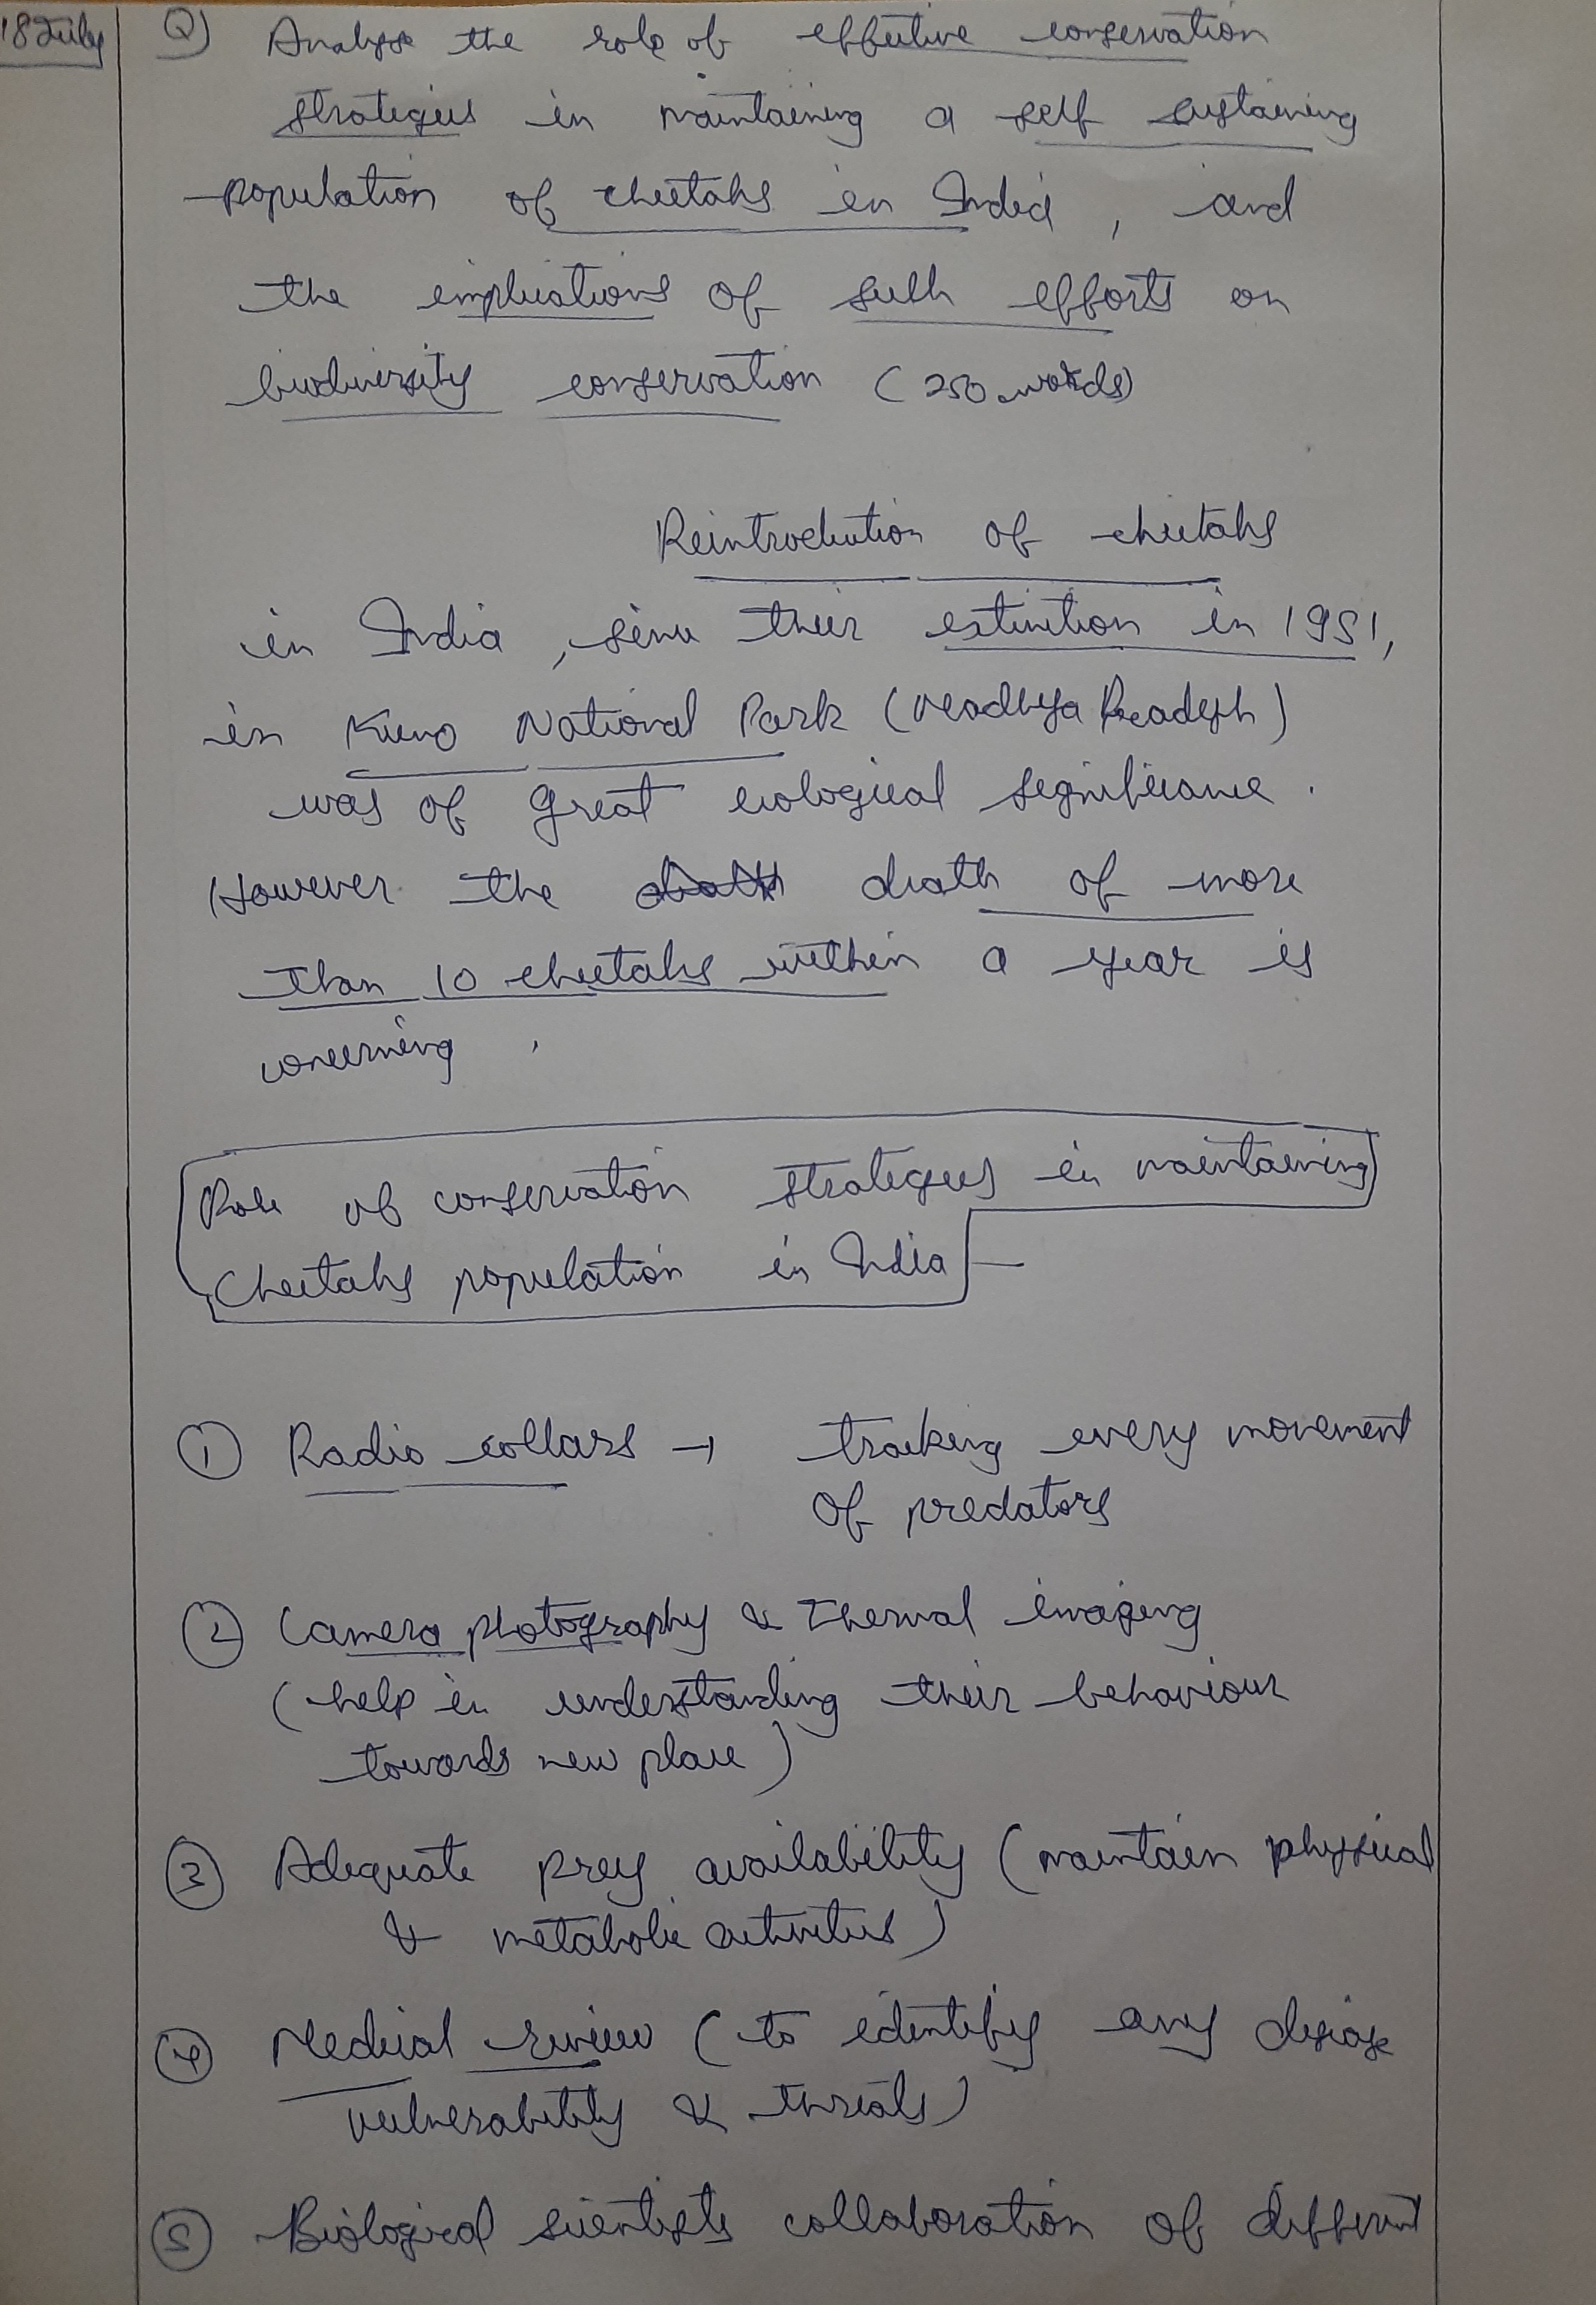 18 July
Q) Analyse the role of effective conservation
strategies in maintaining a self sustaining
population of cheetahs in India, and
the implications of such efforts on
biodiversity conservation (250 words)
Reintroduction of cheetahs
in India, since their extinction in 1951,
in Kuno National Park (Madhya Pradesh)
was of great ecological significance.
However the death of more
than 10 cheetahs within a year is
concerning.
Role of conservation strategies in maintaining
Cheetahs population in India —
① Radio collars → tracking every movement
of predators
② Camera photography & Thermal imaging
(help in understanding their behaviour
towards new place)
③ Adequate prey availability (maintain physical
& metabolic activities)
④ Medical review (to identify any disease
vulnerability & threats)
⑤ Biological scientists collaboration of different